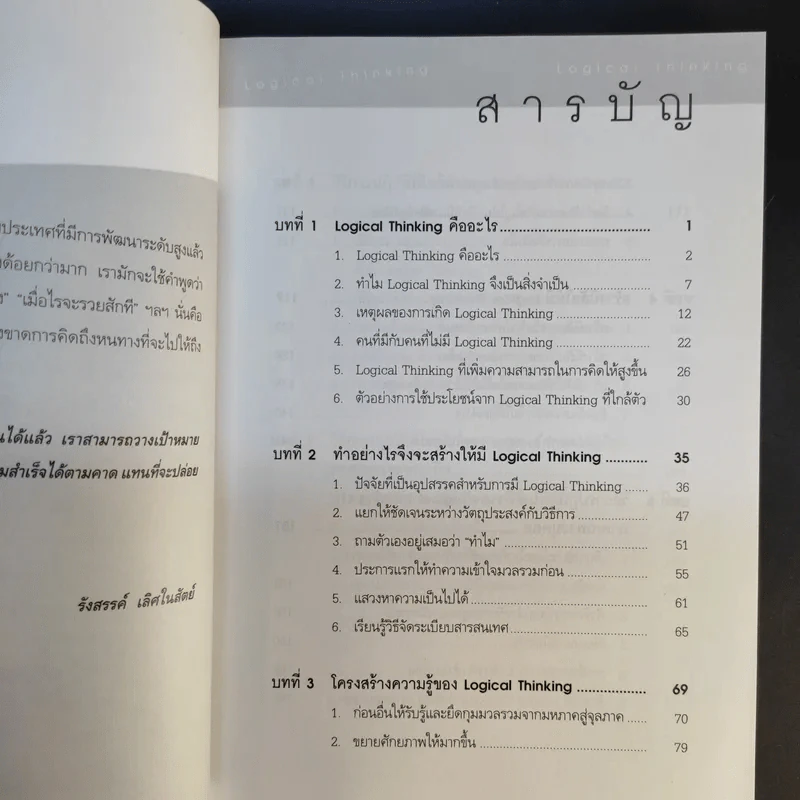 ประเทศที่มีการพัฒนาระดับสูงแล้ว
ด้อยกว่ามาก เรามักจะใช้คำพูดว่า
"เมื่อไรจะรวยสักที" ฯลฯ นั่นคือ
ขาดการคิดถึงหนทางที่จะไปให้ถึง
ได้แล้ว เราสามารถวางเป้าหมาย
สำเร็จได้ตามคาด แทนที่จะปล่อย
รังสรรค์ เลิศในสัตย์
Logical Thinking Logical Thinking
สารบัญ
บทที่ 1 Logical Thinking คืออะไร 1
1. Logical Thinking คืออะไร 2
2. ทำไม Logical Thinking จึงเป็นสิ่งจำเป็น 7
3. เหตุผลของการเกิด Logical Thinking 12
4. คนที่มีกับคนที่ไม่มี Logical Thinking 22
5. Logical Thinking ที่เพิ่มความสามารถในการคิดให้สูงขึ้น 26
6. ตัวอย่างการใช้ประโยชน์จาก Logical Thinking ที่ใกล้ตัว 30
บทที่ 2 ทำอย่างไรจึงจะสร้างให้มี Logical Thinking 35
1. ปัจจัยที่เป็นอุปสรรคสำหรับการมี Logical Thinking 36
2. แยกให้ชัดเจนระหว่างวัตถุประสงค์กับวิธีการ 47
3. ถามตัวเองอยู่เสมอว่า "ทำไม" 51
4. ประการแรกให้ทำความเข้าใจมวลรวมก่อน 55
5. แสวงหาความเป็นไปได้ 61
6. เรียนรู้วิธีจัดระเบียบสารสนเทศ 65
บทที่ 3 โครงสร้างความรู้ของ Logical Thinking 69
1. ก่อนอื่นให้รับรู้และยึดกุมมวลรวมจากมหภาคสู่จุลภาค 70
2. ขยายศักยภาพให้มากขึ้น 79